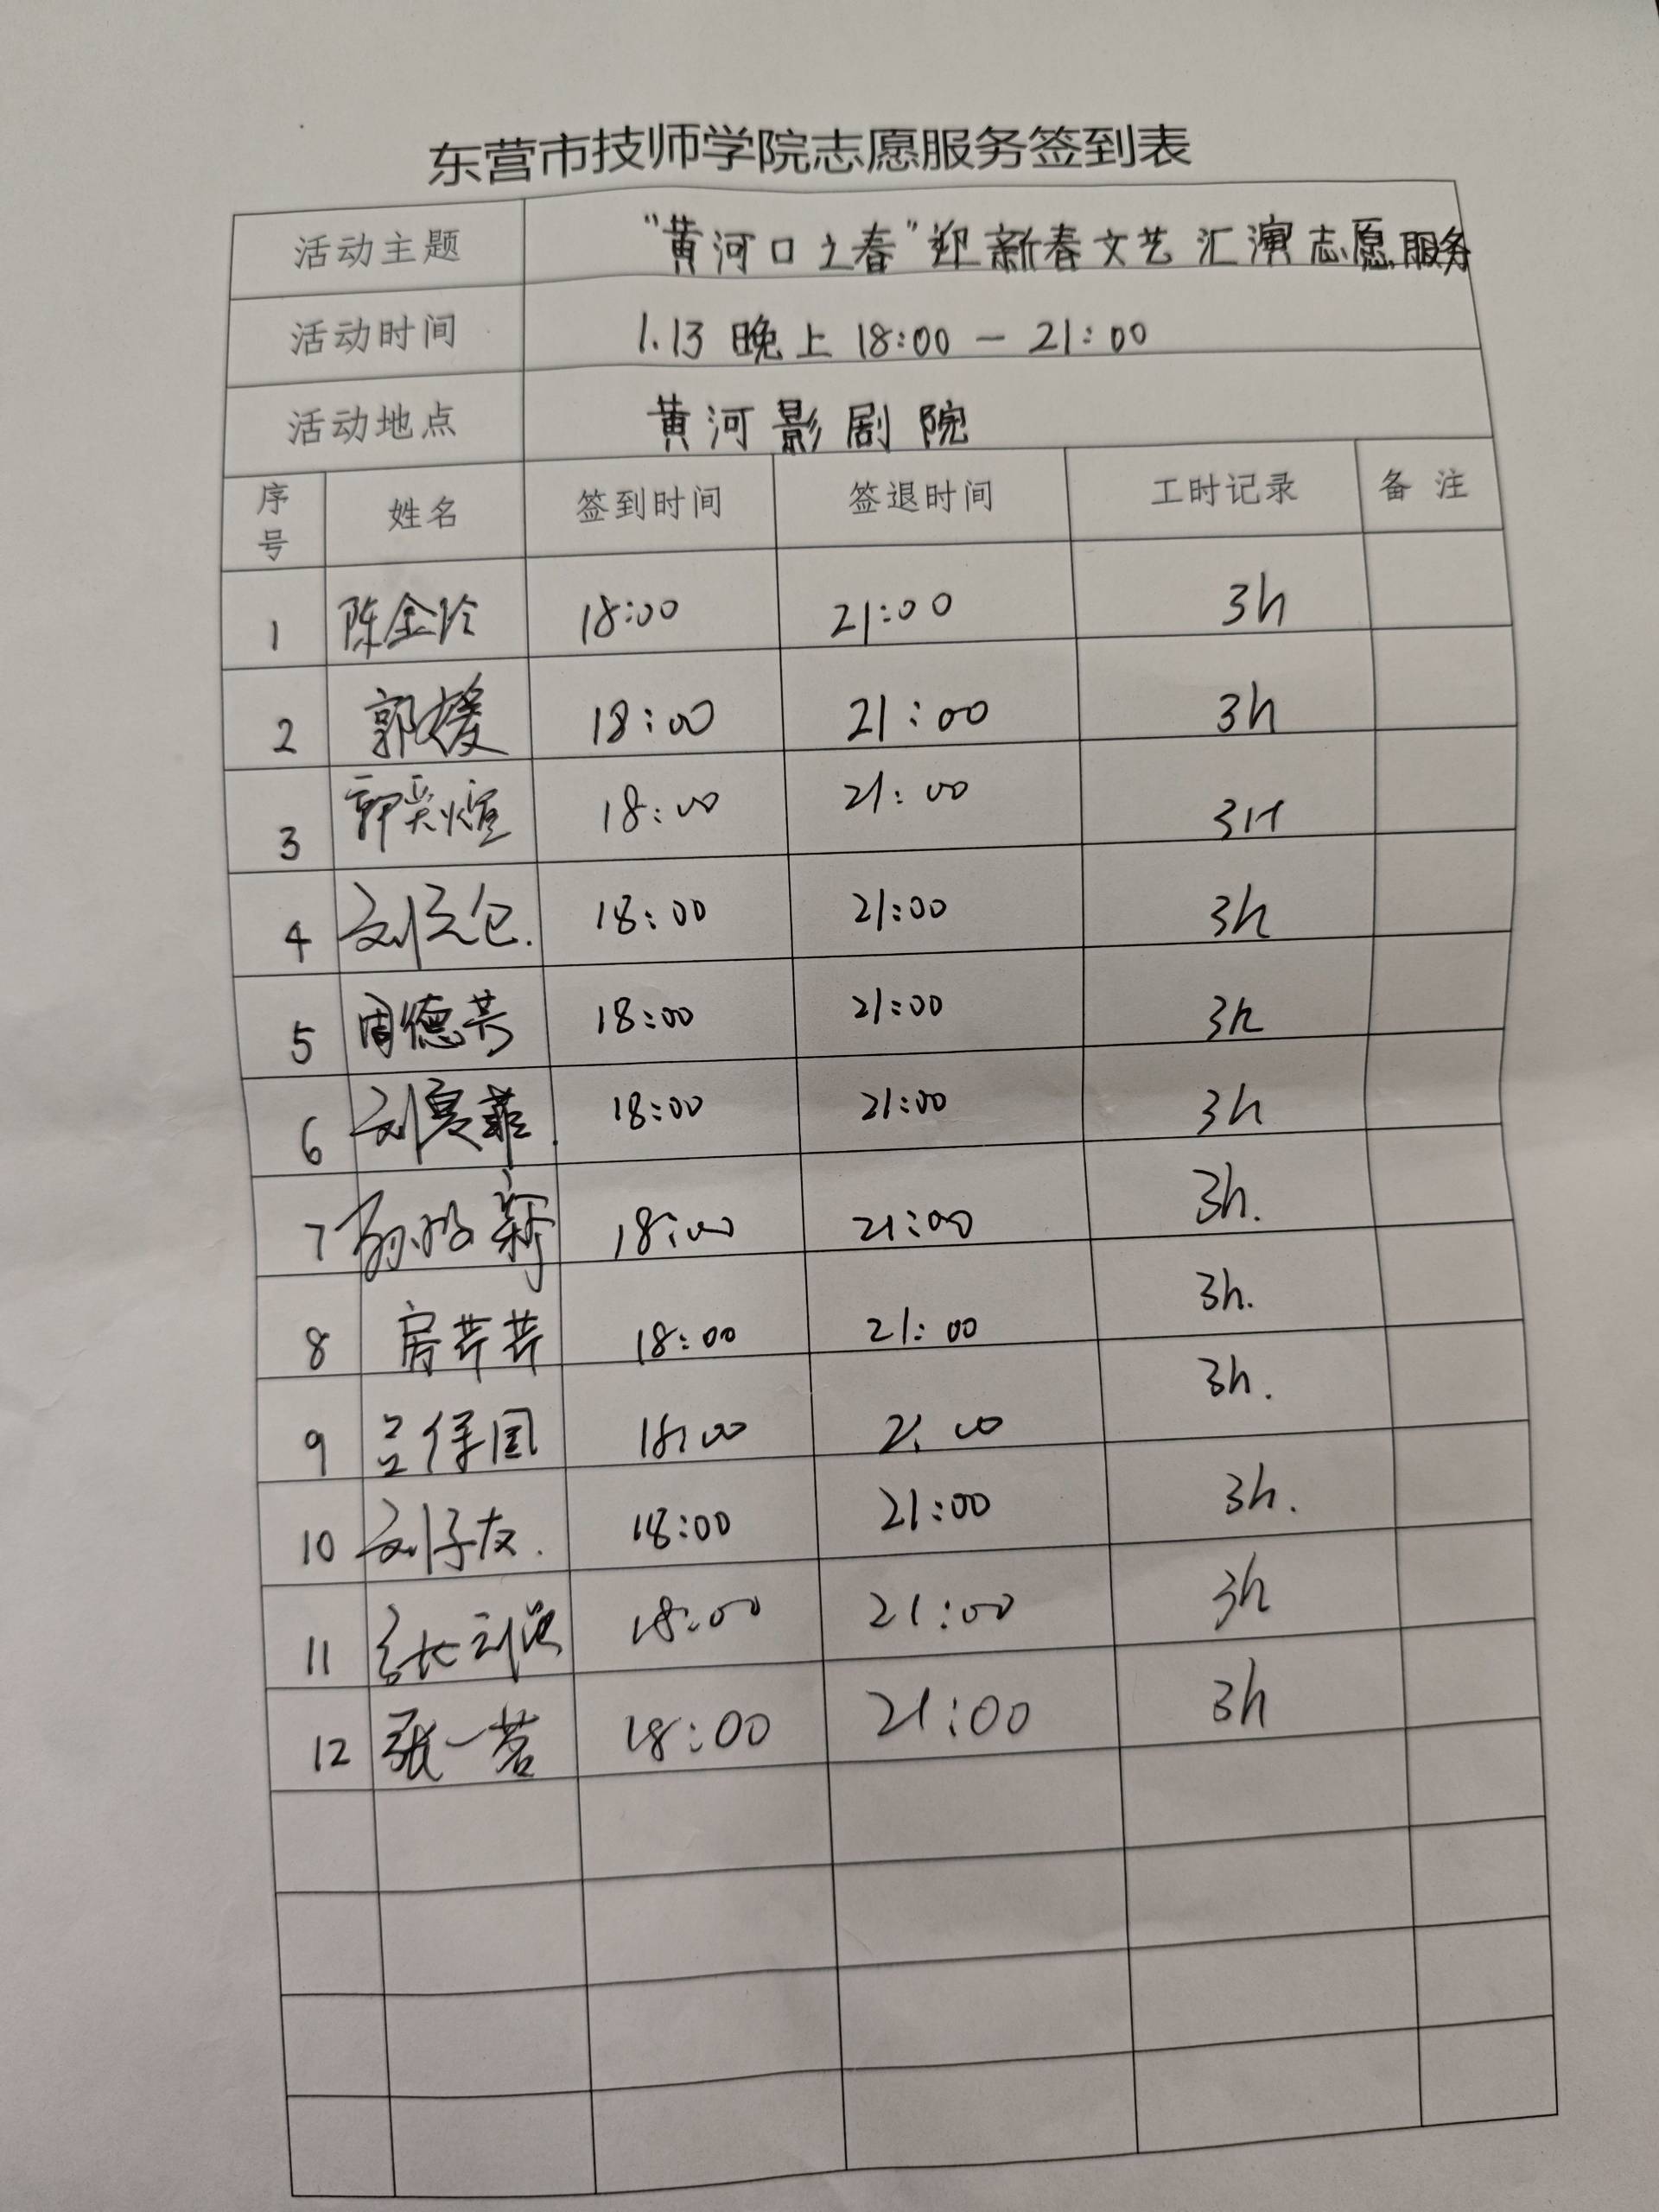 东营市技师学院志愿服务签到表
活动主题 "黄河口之春"迎新春文艺汇演志愿服务
活动时间 1.13 晚上 18:00 — 21:00
活动地点 黄河影剧院
序号 姓名 签到时间 签退时间 工时记录 备注
1 陈金玲 18:00 21:00 3h
2 郭媛 18:00 21:00 3h
3 郭奕煊 18:00 21:00 3H
4 刘元仑. 18:00 21:00 3h
5 周德芳 18:00 21:00 3h
6 刘夏菲. 18:00 21:00 3h
7 18:00 21:00 3h.
8 房芹芹 18:00 21:00 3h.
9 吕保国 18:00 21:00 3h.
10 刘子友. 18:00 21:00 3h.
11 18:00 21:00 3h
12 张一茗 18:00 21:00 3h